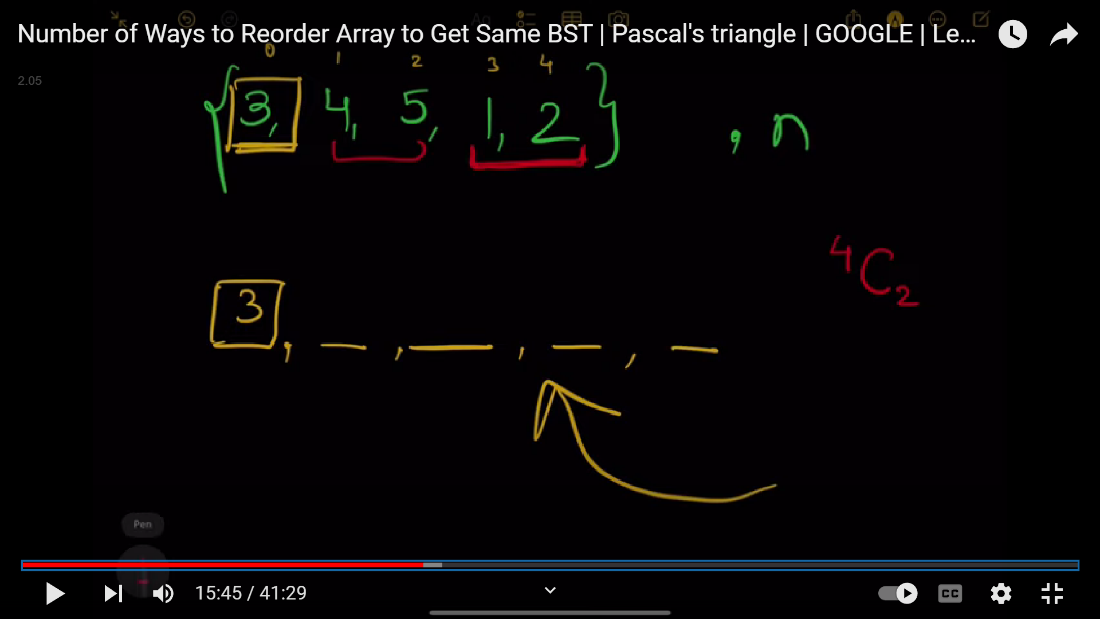 Number of Ways to Reorder Array to Get Same BST | Pascal's triangle | GOOGLE | Le...
2.05
0 1 2 3 4
{3, 4, 5, 1, 2} , n
⁴C₂
3, _, _, _, _
Pen
15:45 / 41:29
CC